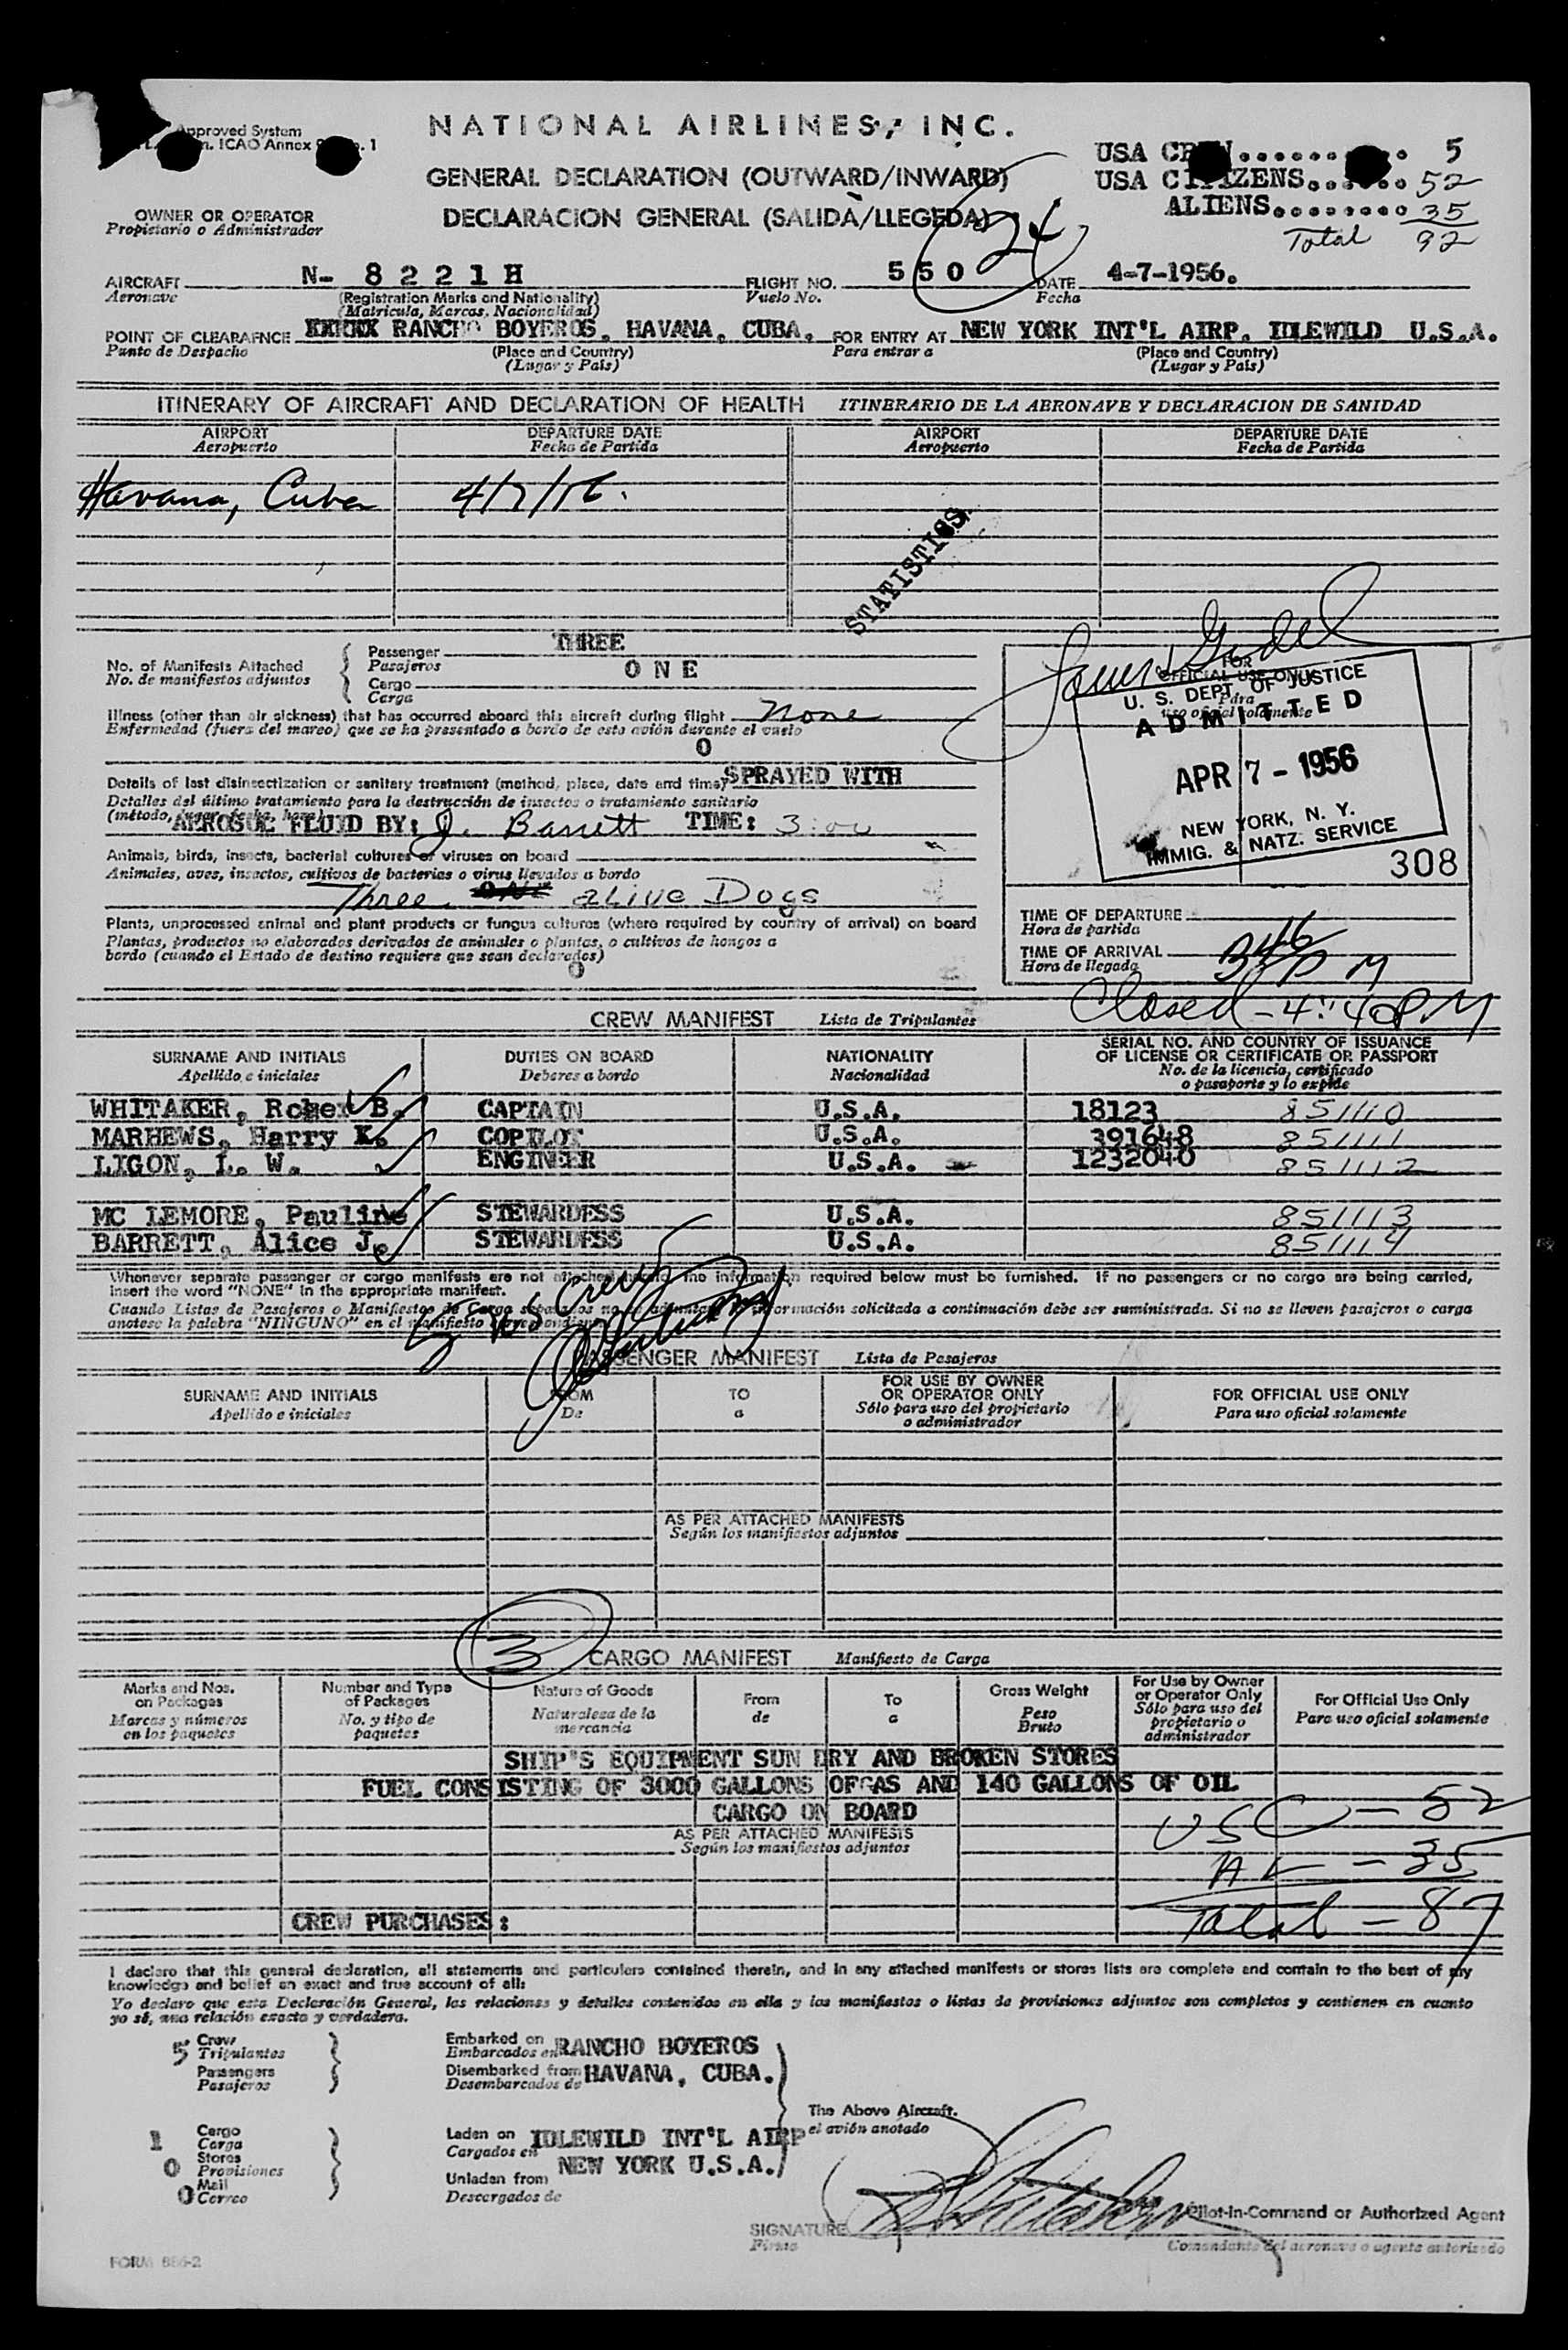 Approved System
ICAO Annex 1
NATIONAL AIRLINES, INC.
GENERAL DECLARATION (OUTWARD/INWARD)
DECLARACION GENERAL (SALIDA/LLEGEDA)
24
USA CREW 5
USA CITIZENS 52
ALIENS 35
Total 92
OWNER OR OPERATOR
Propietario o Administrador
AIRCRAFT N- 8 2 2 1 H FLIGHT NO. 5 5 0 DATE 4-7-1956.
Aeronave (Registration Marks and Nationality) Vuelo No. Fecha
(Matricula, Marcas, Nacionalidad)
POINT OF CLEARAFNCE RANCHO BOYEROS, HAVANA, CUBA. FOR ENTRY AT NEW YORK INT'L AIRP. IDLEWILD U.S.A.
Punto de Despacho (Place and Country) Para entrar a (Place and Country)
(Lugar y Pais) (Lugar y Pais)
ITINERARY OF AIRCRAFT AND DECLARATION OF HEALTH ITINERARIO DE LA AERONAVE Y DECLARACION DE SANIDAD
AIRPORT DEPARTURE DATE AIRPORT DEPARTURE DATE
Aeropuerto Fecha de Partida Aeropuerto Fecha de Partida
Havana, Cuba 4/7/56.
STATISTICS
No. of Manifests Attached Passenger THREE
No. de manifiestos adjuntos Pasajeros
Cargo O N E
Carga
Illness (other than air sickness) that has occurred aboard this aircraft during flight None
Enfermedad (fuera del mareo) que se ha presentado a bordo de este avión durante el vuelo
0
Details of last disinsectization or sanitary treatment (method, place, date and time) SPRAYED WITH
Detalles del último tratamiento para la destrucción de insectos o tratamiento sanitario
(método, lugar, fecha, hora)
AEROSOL FLUID BY: J. Barrett TIME: 3:00
Animals, birds, insects, bacterial cultures or viruses on board
Animales, aves, insectos, cultivos de bacterias o virus llevados a bordo
Three alive Dogs
Plants, unprocessed animal and plant products or fungus cultures (where required by country of arrival) on board
Plantas, productos no elaborados derivados de animales o plantas, o cultivos de hongos a
bordo (cuando el Estado de destino requiere que sean declarados)
0
FOR
OFFICIAL USE ONLY
Para
uso oficial solamente
U. S. DEPT. OF JUSTICE
ADMITTED
APR 7 - 1956
NEW YORK, N. Y.
IMMIG. & NATZ. SERVICE
308
TIME OF DEPARTURE
Hora de partida
TIME OF ARRIVAL 346 P M
Hora de llegada
Closed - 4:40 PM
CREW MANIFEST Lista de Tripulantes
SURNAME AND INITIALS DUTIES ON BOARD NATIONALITY SERIAL NO. AND COUNTRY OF ISSUANCE
OF LICENSE OR CERTIFICATE OR PASSPORT
Apellido e iniciales Deberes a bordo Nacionalidad No. de la licencia, certificado
o pasaporte y lo expide
WHITAKER, Rober B. CAPTAIN U.S.A. 18123 851110
MARHEWS, Harry K. COPILOT U.S.A. 391648 851111
LIGON, L. W. ENGINEER U.S.A. 1232040 851112
MC LEMORE, Pauline STEWARDESS U.S.A. 851113
BARRETT, Alice J. STEWARDESS U.S.A. 851114
Whenever separate passenger or cargo manifests are not attached the information required below must be furnished. If no passengers or no cargo are being carried,
insert the word "NONE" in the appropriate manifest.
Cuando Listas de Pasajeros o Manifiestos de Carga separados no se adjuntan información solicitada a continuación debe ser suministrada. Si no se lleven pasajeros o carga
anotese la palabra "NINGUNO" en el manifiesto correspondiente
5 US Crew
PASSENGER MANIFEST Lista de Pasajeros
SURNAME AND INITIALS FROM TO FOR USE BY OWNER
OR OPERATOR ONLY FOR OFFICIAL USE ONLY
Apellido e iniciales De a Sólo para uso del propietario
o administrador Para uso oficial solamente
AS PER ATTACHED MANIFESTS
Según los manifiestos adjuntos
3
CARGO MANIFEST Manifiesto de Carga
Marks and Nos.
on Packages
Marcas y números
en los paquetes
Number and Type
of Packages
No. y tipo de
paquetes
Nature of Goods
Naturaleza de la
mercancia
From
de
To
a
Gross Weight
Peso
Bruto
For Use by Owner
or Operator Only
Sólo para uso del
propietario o
administrador
For Official Use Only
Para uso oficial solamente
SHIP'S EQUIPMENT SUN DRY AND BROKEN STORES
FUEL CONSISTING OF 3000 GALLONS OFGAS AND 140 GALLONS OF OIL
CARGO ON BOARD
AS PER ATTACHED MANIFESTS
Según los manifiestos adjuntos
USC - 52
AL - 35
Total - 87
CREW PURCHASES:
I declare that this general declaration, all statements and particulars contained therein, and in any attached manifests or stores lists are complete and contain to the best of my
knowledge and belief an exact and true account of all:
Yo declaro que esta Declaración General, las relaciones y detalles contenidos en ella y los manifiestos o listas de provisiones adjuntos son completos y contienen en cuanto
yo sé, una relación exacta y verdadera.
5 Crew
Tripulantes
Passengers
Pasajeros
Embarked on RANCHO BOYEROS
Embarcados en
Disembarked from HAVANA, CUBA.
Desembarcados de
The Above Aircraft.
el avión anotado
1 Cargo
Carga
0 Stores
Provisiones
0 Mail
Correo
Laden on IDLEWILD INT'L AIRP
Cargados en
NEW YORK U.S.A.
Unladen from
Descargados de
SIGNATURE
Firma
Pilot-in-Command or Authorized Agent
Comandante del aeronave o agente autorizado
FORM 886-2